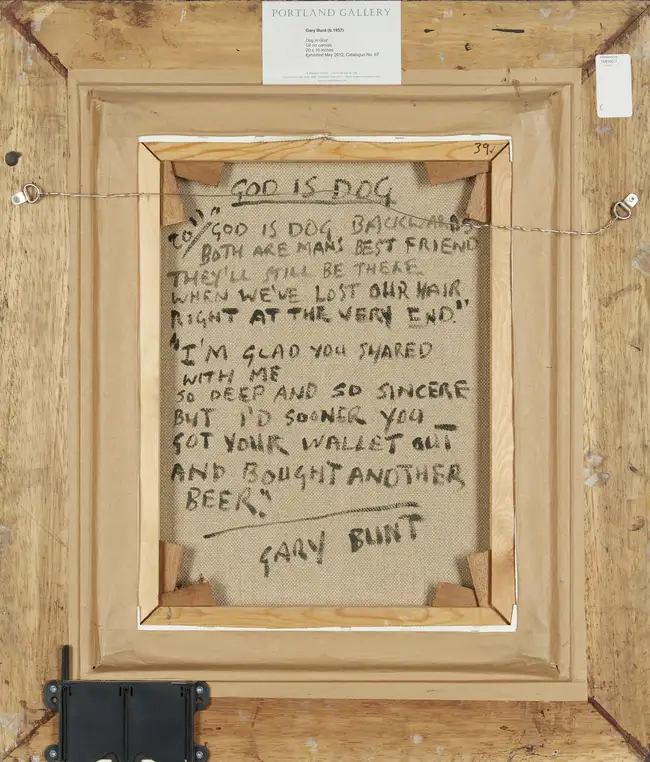 PORTLAND GALLERY
Gary Bunt (b.1957)
Oil on canvas
20 x 16 inches
Exhibited May 2012, Catalogue No. 67
39.
GOD IS DOG
"GOD IS DOG BACKWARDS
BOTH ARE MANS BEST FRIEND
THEY'LL STILL BE THERE
WHEN WE'VE LOST OUR HAIR
RIGHT AT THE VERY END."
"I'M GLAD YOU SHARED
WITH ME
SO DEEP AND SO SINCERE
BUT I'D SOONER YOU
GOT YOUR WALLET OUT
AND BOUGHT ANOTHER
BEER."
GARY BUNT